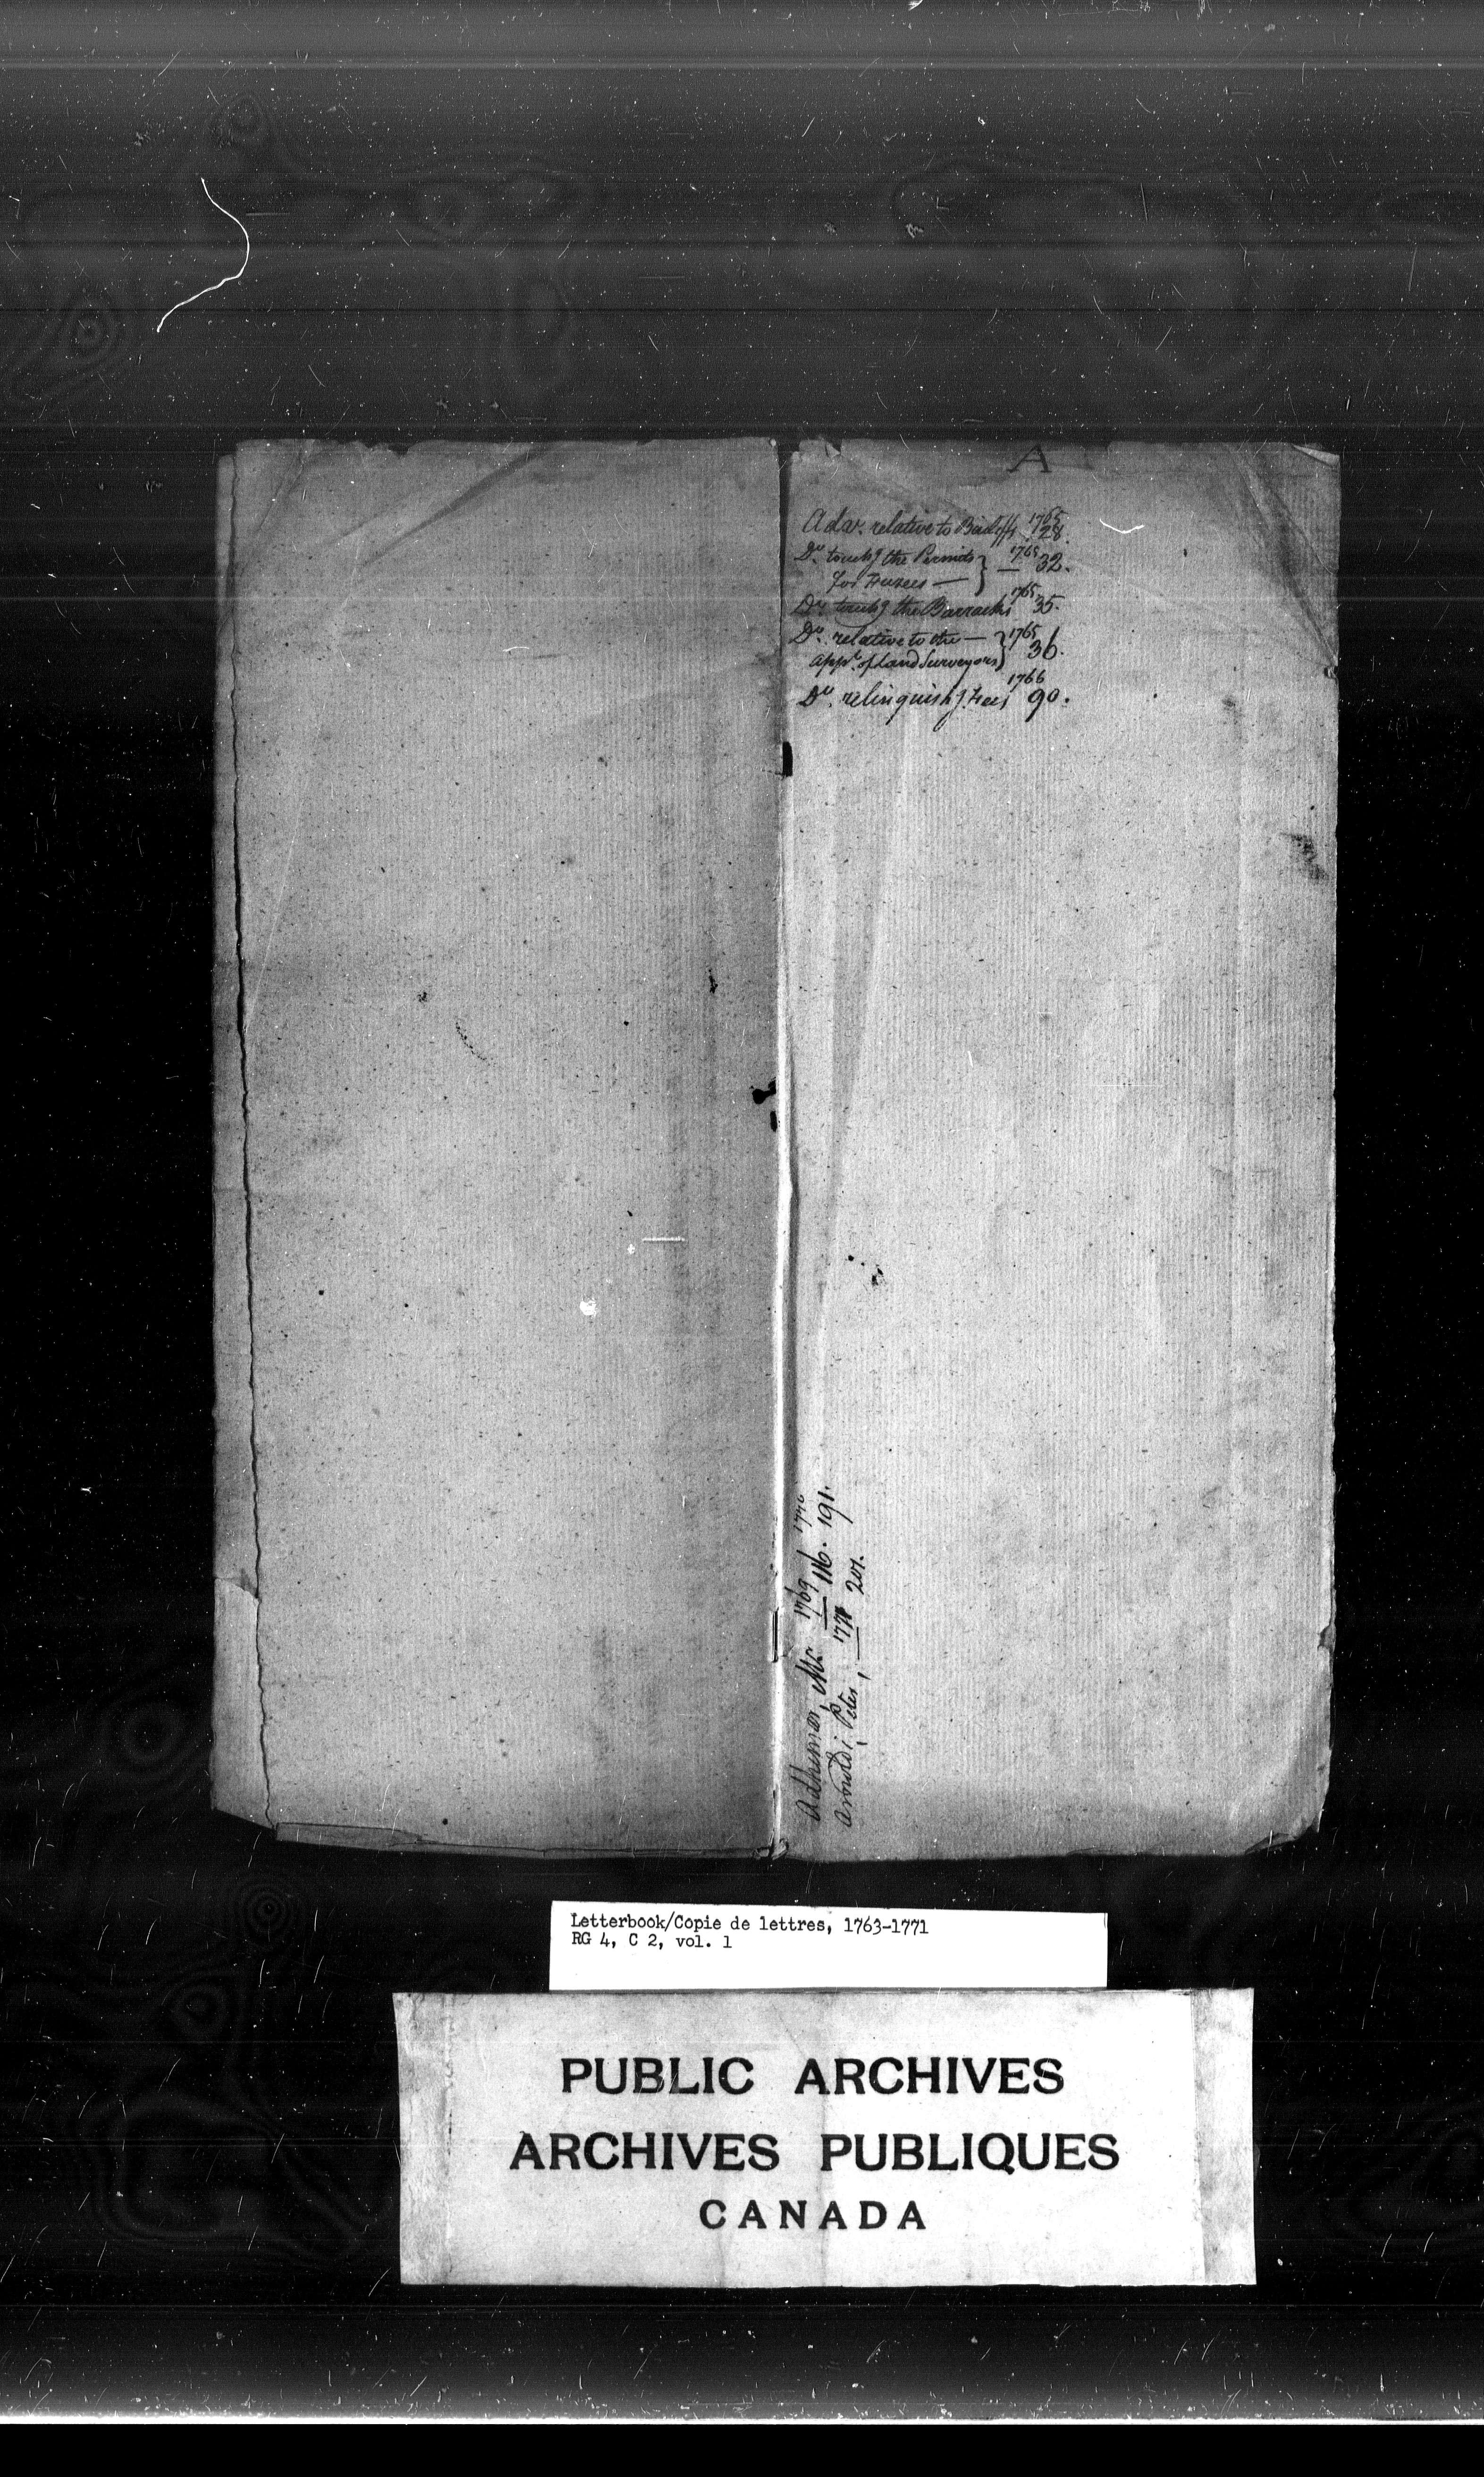 A
Adv. relative to Bailiffs 1765 28.
Do. touchg the Permits } 1765 — 32.
for Fuzees —
Do. touchg the Barracks 1765 35.
Do. relative to the — } 1765 36.
Appt. of Land Surveyors
Do. relinquishg Fees 1766 90.
Adhemar, Mr 1769 116. 1770 191.
Arnoldi, Peter, 1771 201.
Letterbook/Copie de lettres, 1763-1771
RG 4, C 2, vol. 1
PUBLIC ARCHIVES
ARCHIVES PUBLIQUES
CANADA